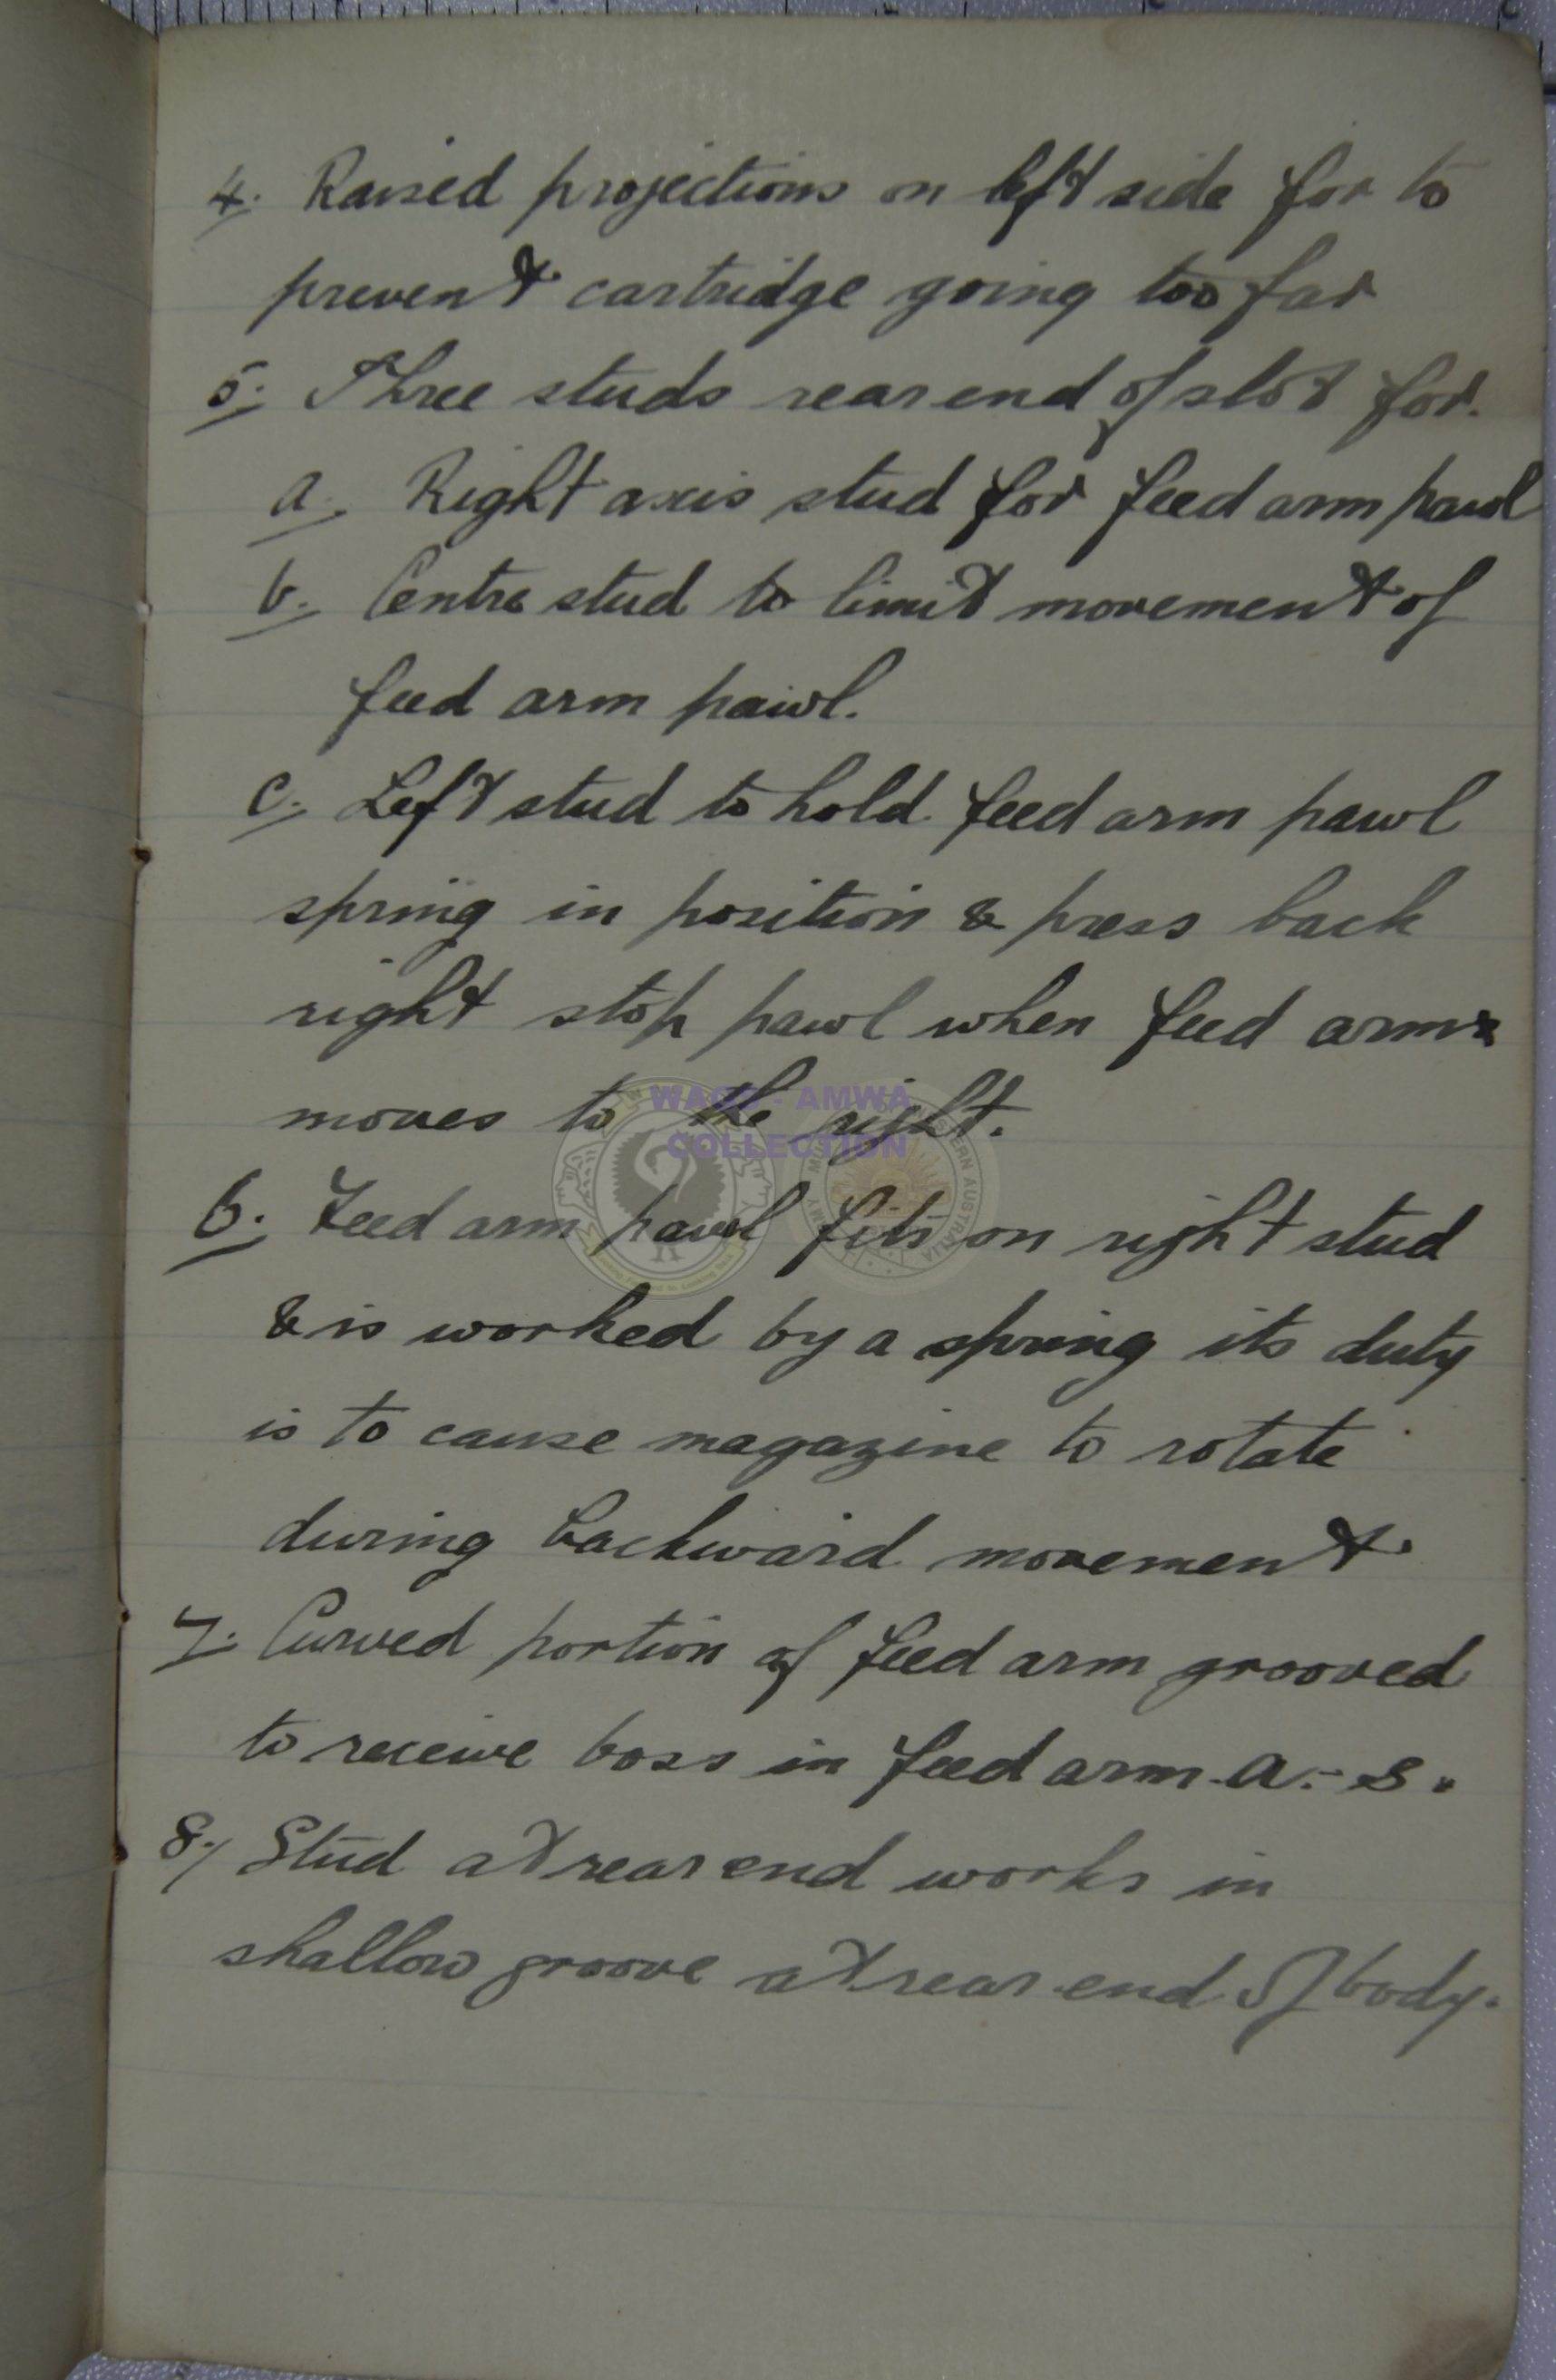 4. Raised projections on left side for to
prevent cartridge going too far
5. Three studs rear end of slot for.
a. Right axis stud for feed arm pawl
b. Centre stud to limit movement of
feed arm pawl.
c. Left stud to hold feed arm pawl
spring in position & press back
right stop pawl when feed arm
moves to the right.
WAGS - AMWA
COLLECTION
6. Feed arm pawl fits on right stud
& is worked by a spring its duty
is to cause magazine to rotate
during backward movement.
7. Curved portion of feed arm grooved
to receive boss in feed arm. A. - S.
8. Stud at rear end works in
shallow groove at rear end of body.